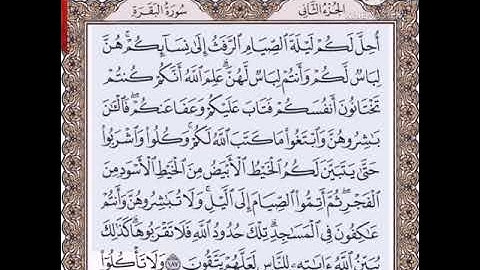 الجزء الثاني
سورة البقرة
أُحِلَّ لَكُمْ لَيْلَةَ ٱلصِّيَامِ ٱلرَّفَثُ إِلَىٰ نِسَآئِكُمْ ۚ هُنَّ
لِبَاسٌ لَّكُمْ وَأَنتُمْ لِبَاسٌ لَّهُنَّ ۗ عَلِمَ ٱللَّهُ أَنَّكُمْ كُنتُمْ
تَخْتَانُونَ أَنفُسَكُمْ فَتَابَ عَلَيْكُمْ وَعَفَا عَنكُمْ ۖ فَٱلْـَٰٔنَ
بَـٰشِرُوهُنَّ وَٱبْتَغُوا۟ مَا كَتَبَ ٱللَّهُ لَكُمْ ۚ وَكُلُوا۟ وَٱشْرَبُوا۟
حَتَّىٰ يَتَبَيَّنَ لَكُمُ ٱلْخَيْطُ ٱلْأَبْيَضُ مِنَ ٱلْخَيْطِ ٱلْأَسْوَدِ مِنَ
ٱلْفَجْرِ ۖ ثُمَّ أَتِمُّوا۟ ٱلصِّيَامَ إِلَى ٱلَّيْلِ ۚ وَلَا تُبَـٰشِرُوهُنَّ وَأَنتُمْ
عَـٰكِفُونَ فِى ٱلْمَسَـٰجِدِ ۗ تِلْكَ حُدُودُ ٱللَّهِ فَلَا تَقْرَبُوهَا ۗ كَذَٰلِكَ
يُبَيِّنُ ٱللَّهُ ءَايَـٰتِهِۦ لِلنَّاسِ لَعَلَّهُمْ يَتَّقُونَ ١٨٧ وَلَا تَأْكُلُوٓا۟